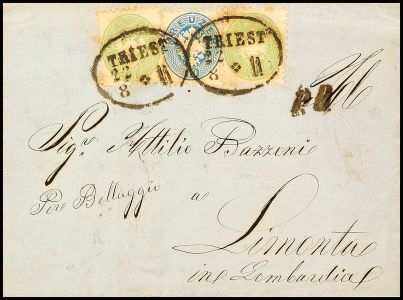 KREUZER
TRIEST TRIEST
22
8 11 8 11
All
P.D.
Sigr Attilio Bazzoni
Per Bellaggio
a
Limonta
in Lombardia